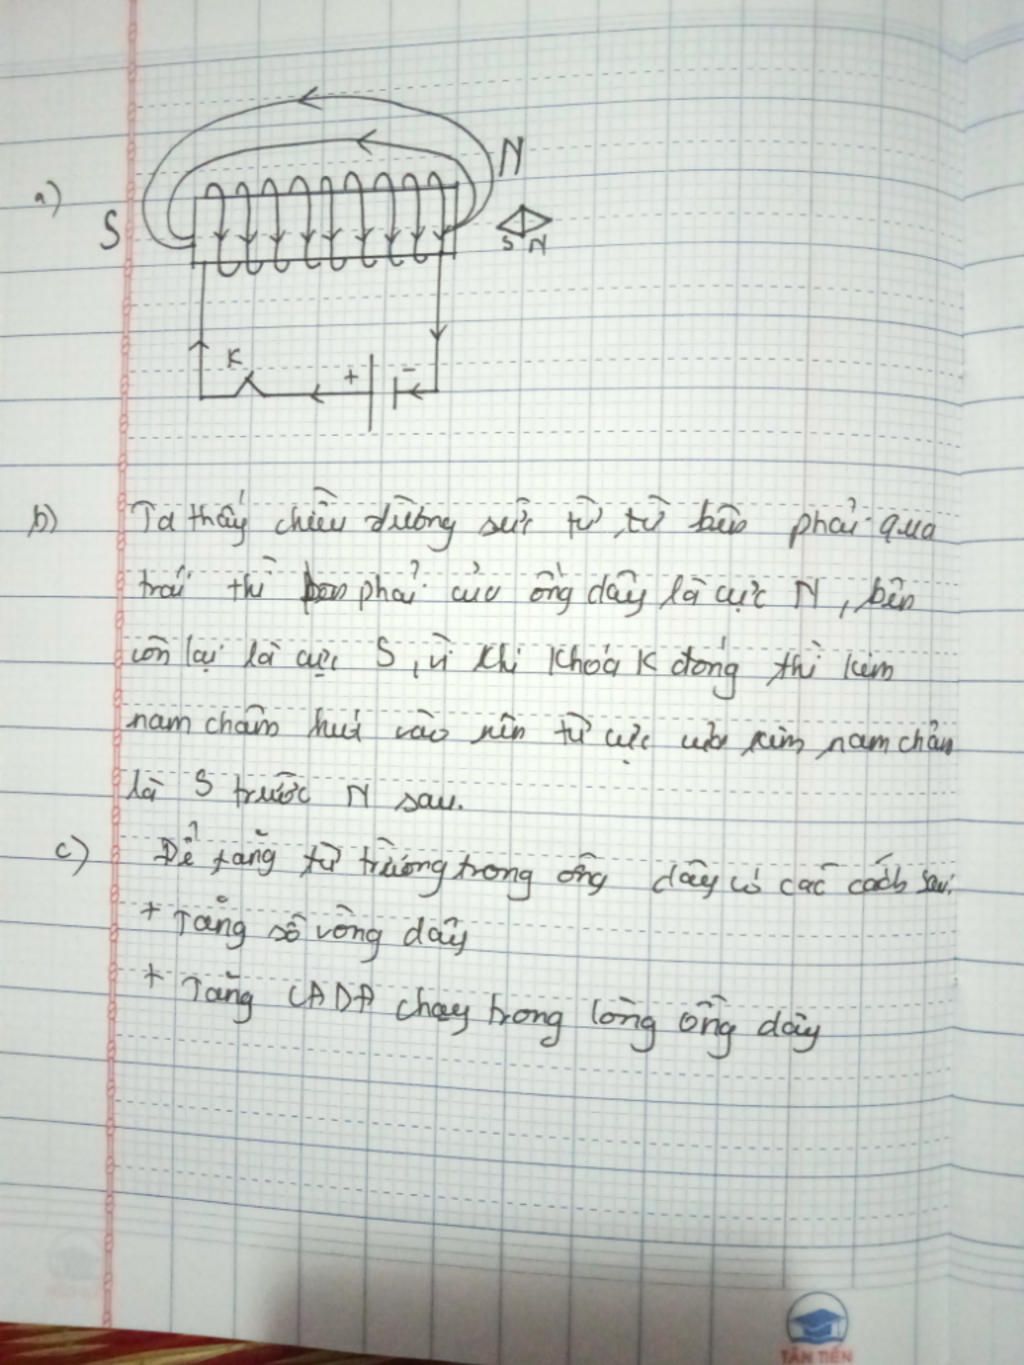 a)
N
S
S N
K
+ -
b) Ta thấy chiều đường sức từ, từ bên phải qua
trái thì bên phải của ống dây là cực N, bên
còn lại là cực S, vì khi khoá K đóng thì kim
nam châm hút vào nên từ cực của kim nam châm
là S trước N sau.
c) Để tăng từ trường trong ống dây có các cách sau:
+ Tăng số vòng dây
+ Tăng CĐDĐ chạy trong lòng ống dây
TÂN TIẾN